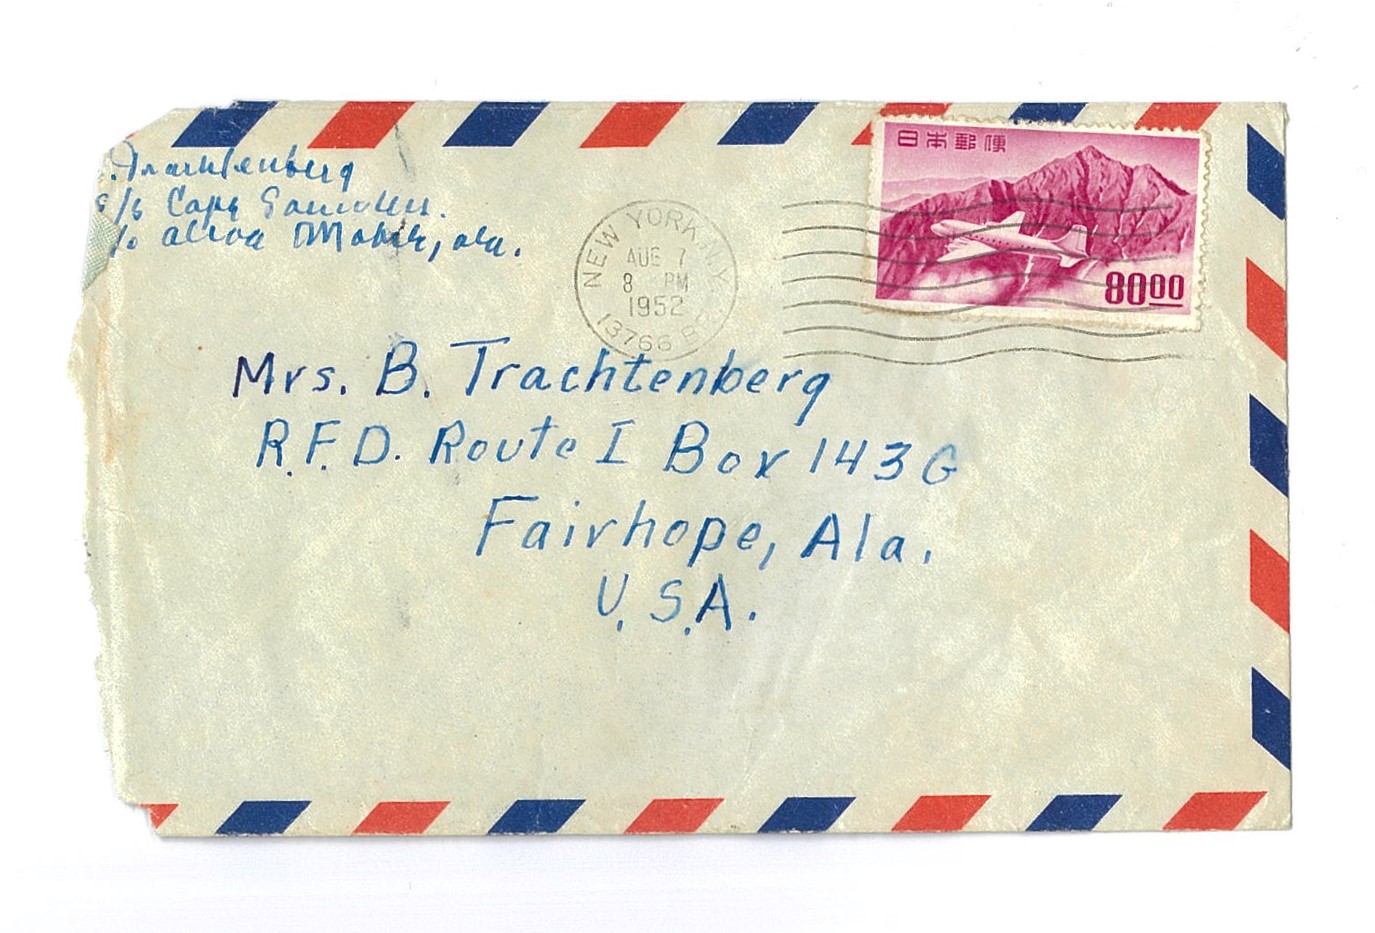 Trachtenberg
S/S Cape
Mobile, Ala.
日本郵便
8000
NEW YORK, N.Y.
AUG 7
8 PM
1952
13766
Mrs. B. Trachtenberg
R.F.D. Route I Box 143G
Fairhope, Ala.
U.S.A.